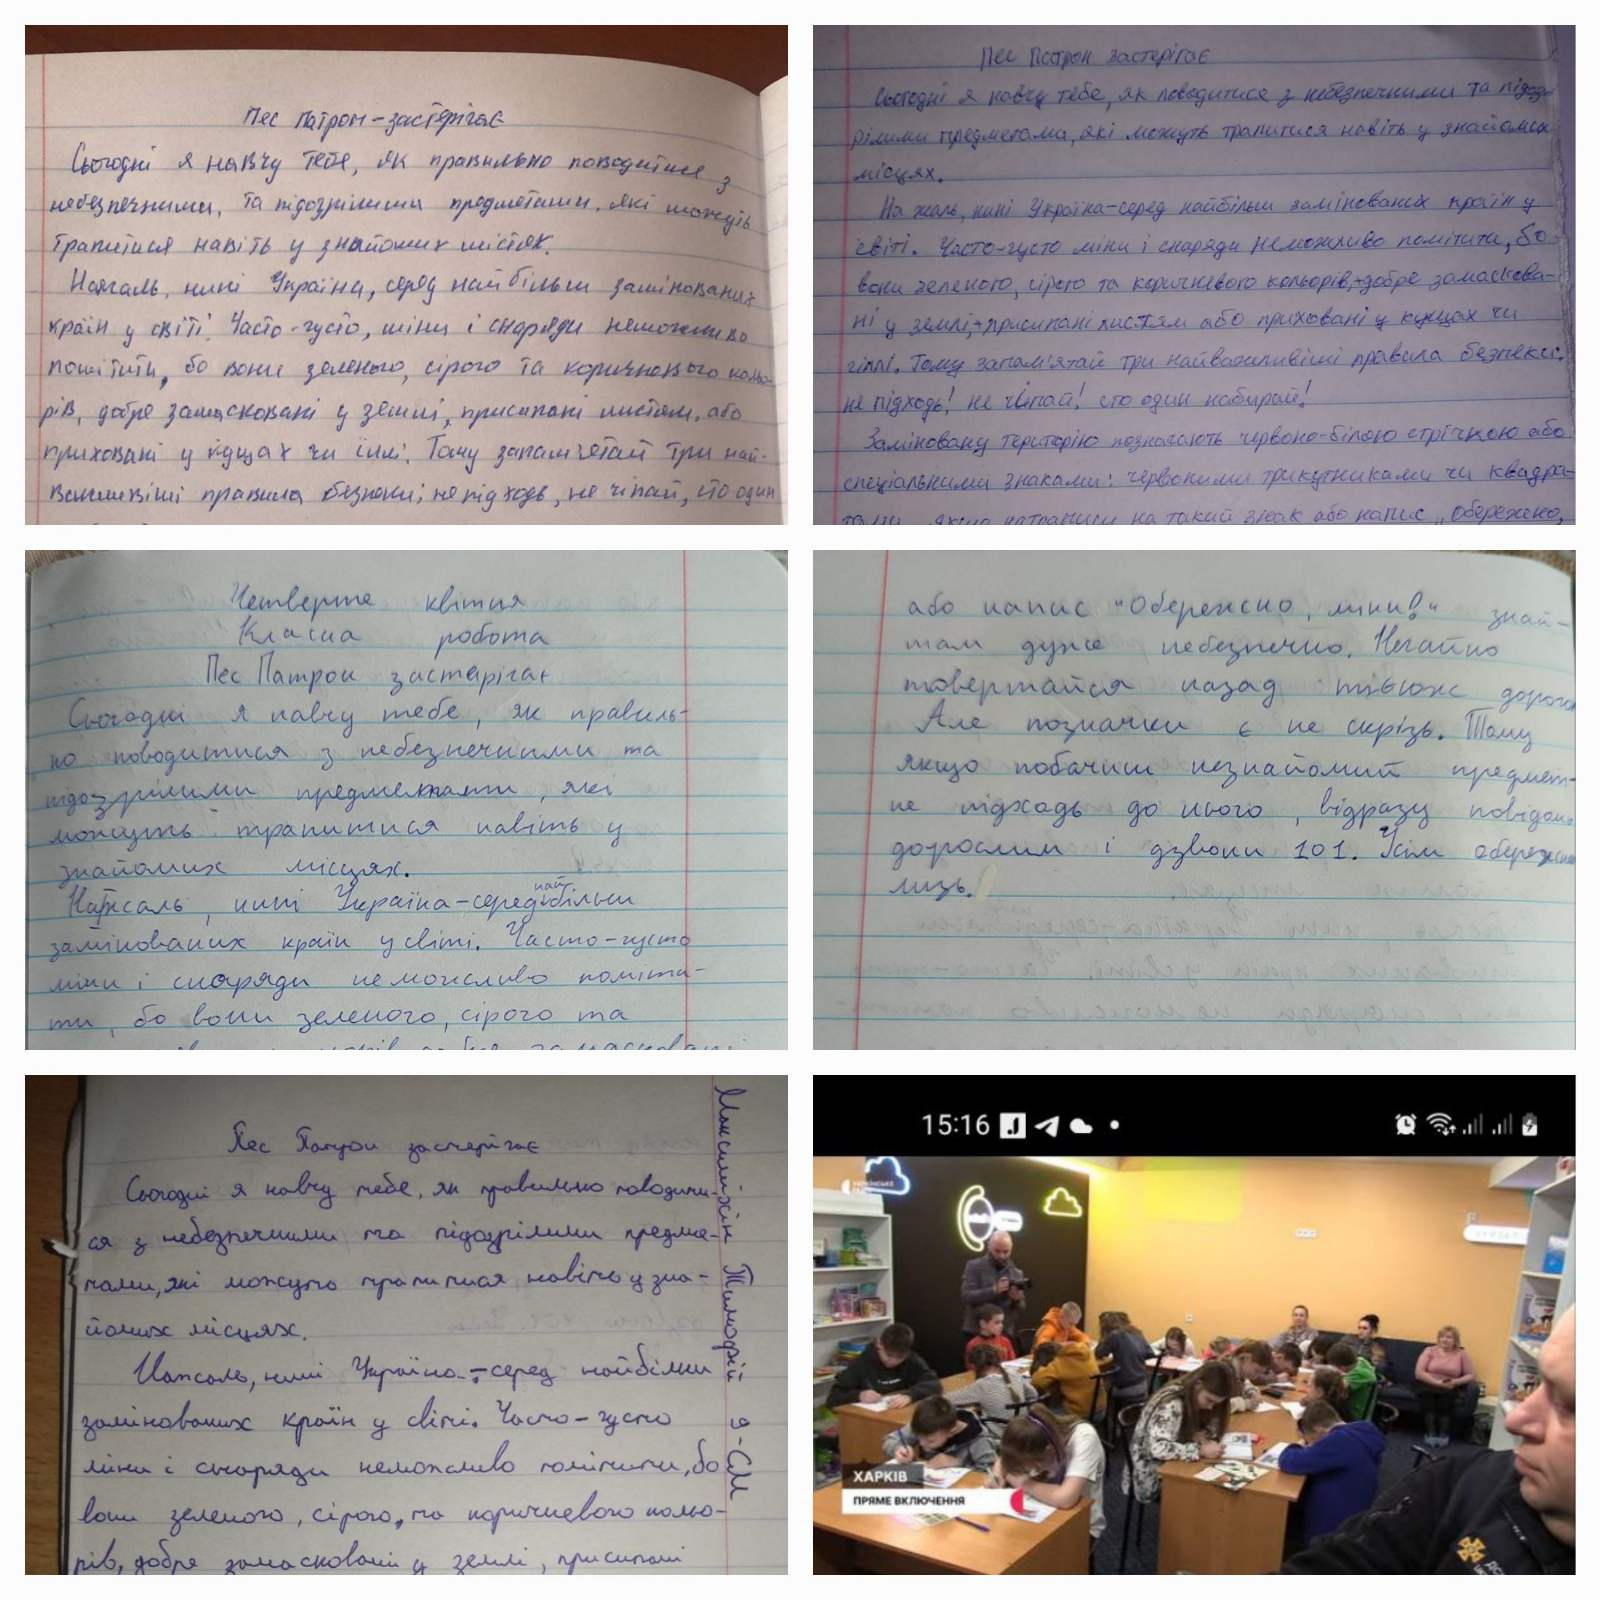 Пес Патрон-застерігає
Сьогодні я навчу тебе, як правильно поводитися з
небезпечними, та підозрілими предметами. які можуть
трапитися навіть у знайомих містях.
Нажаль, нині Україна, серед найбільш замінованих
країн у світі. Часто-густо, міни і снаряди неможливо
помітити, бо вони зеленого, сірого та коричневого кольо-
рів, добре замасковані у землі, присипані листям, або
приховані у кущах чи гіллі. Тому запам'ятай три най-
важливіші правила безпеки; не підходь, не чіпай, сто один
Пес Патрон застерігає
Сьогодні я навчу тебе, як поводитися з небезпечними та підоз-
рілими предметама, які можуть трапитися навіть у знайомих
місцях.
На жаль, нині Україна-серед найбільш замінованих країн у
світі. Часто-густо міни і снаряди неможливо помітити, бо
вони зеленого, сірого та коричневого кольорів, добре замаскова-
ні у землі, присипані листям або приховані у кущах чи
гіллі. Тому запам'ятай три найважливіші правила безпеки:
не підходь! не чіпай! сто один набирай!
Заміновану територію позначають червоно-білою стрічкою або
спеціальними знаками: червоними трикутниками чи квадра-
тами якщо натрапиш на такий знак або напис „Обережно,
Четверте квітня
Класна робота
Пес Патрон застерігає
Сьогодні я навчу тебе, як правиль-
но поводитися з небезпечними та
підозрілими предметами, які
можуть трапитися навіть у
знайомих місцях.
Нажаль, нині Україна-серед найбільш
замінованих країн у світі. Часто-густо
міни і снаряди неможливо поміти-
ти, бо вони зеленого, сірого та
замасковані
або напис "Обережно, міни!" знай-
там дуже небезпечно. Негайно
повертайся назад тією ж дорогою
Але позначки є не скрізь. Тому
якщо побачиш незнайомий предмет-
не підходь до нього, відразу повідом
дорослим і дзвони 101. Усім обережни
лизь.
Пес Патрон застерігає
Сьогодні я навчу тебе, як правильно поводити-
ся з небезпечними та підозрілими предме-
тами, які можуть трапитися навіть у зна-
йомих місцях.
Нажаль, нині Україна-серед найбільш
замінованих країн у світі. Часто-густо
міни і снаряди неможливо помітити, бо
вони зеленого, сірого, та коричневого кольо-
рів, добре замасковані у землі, присипані
Максиміхін Тимофій 9-СМ
15:16
ХАРКІВ
ПРЯМЕ ВКЛЮЧЕННЯ